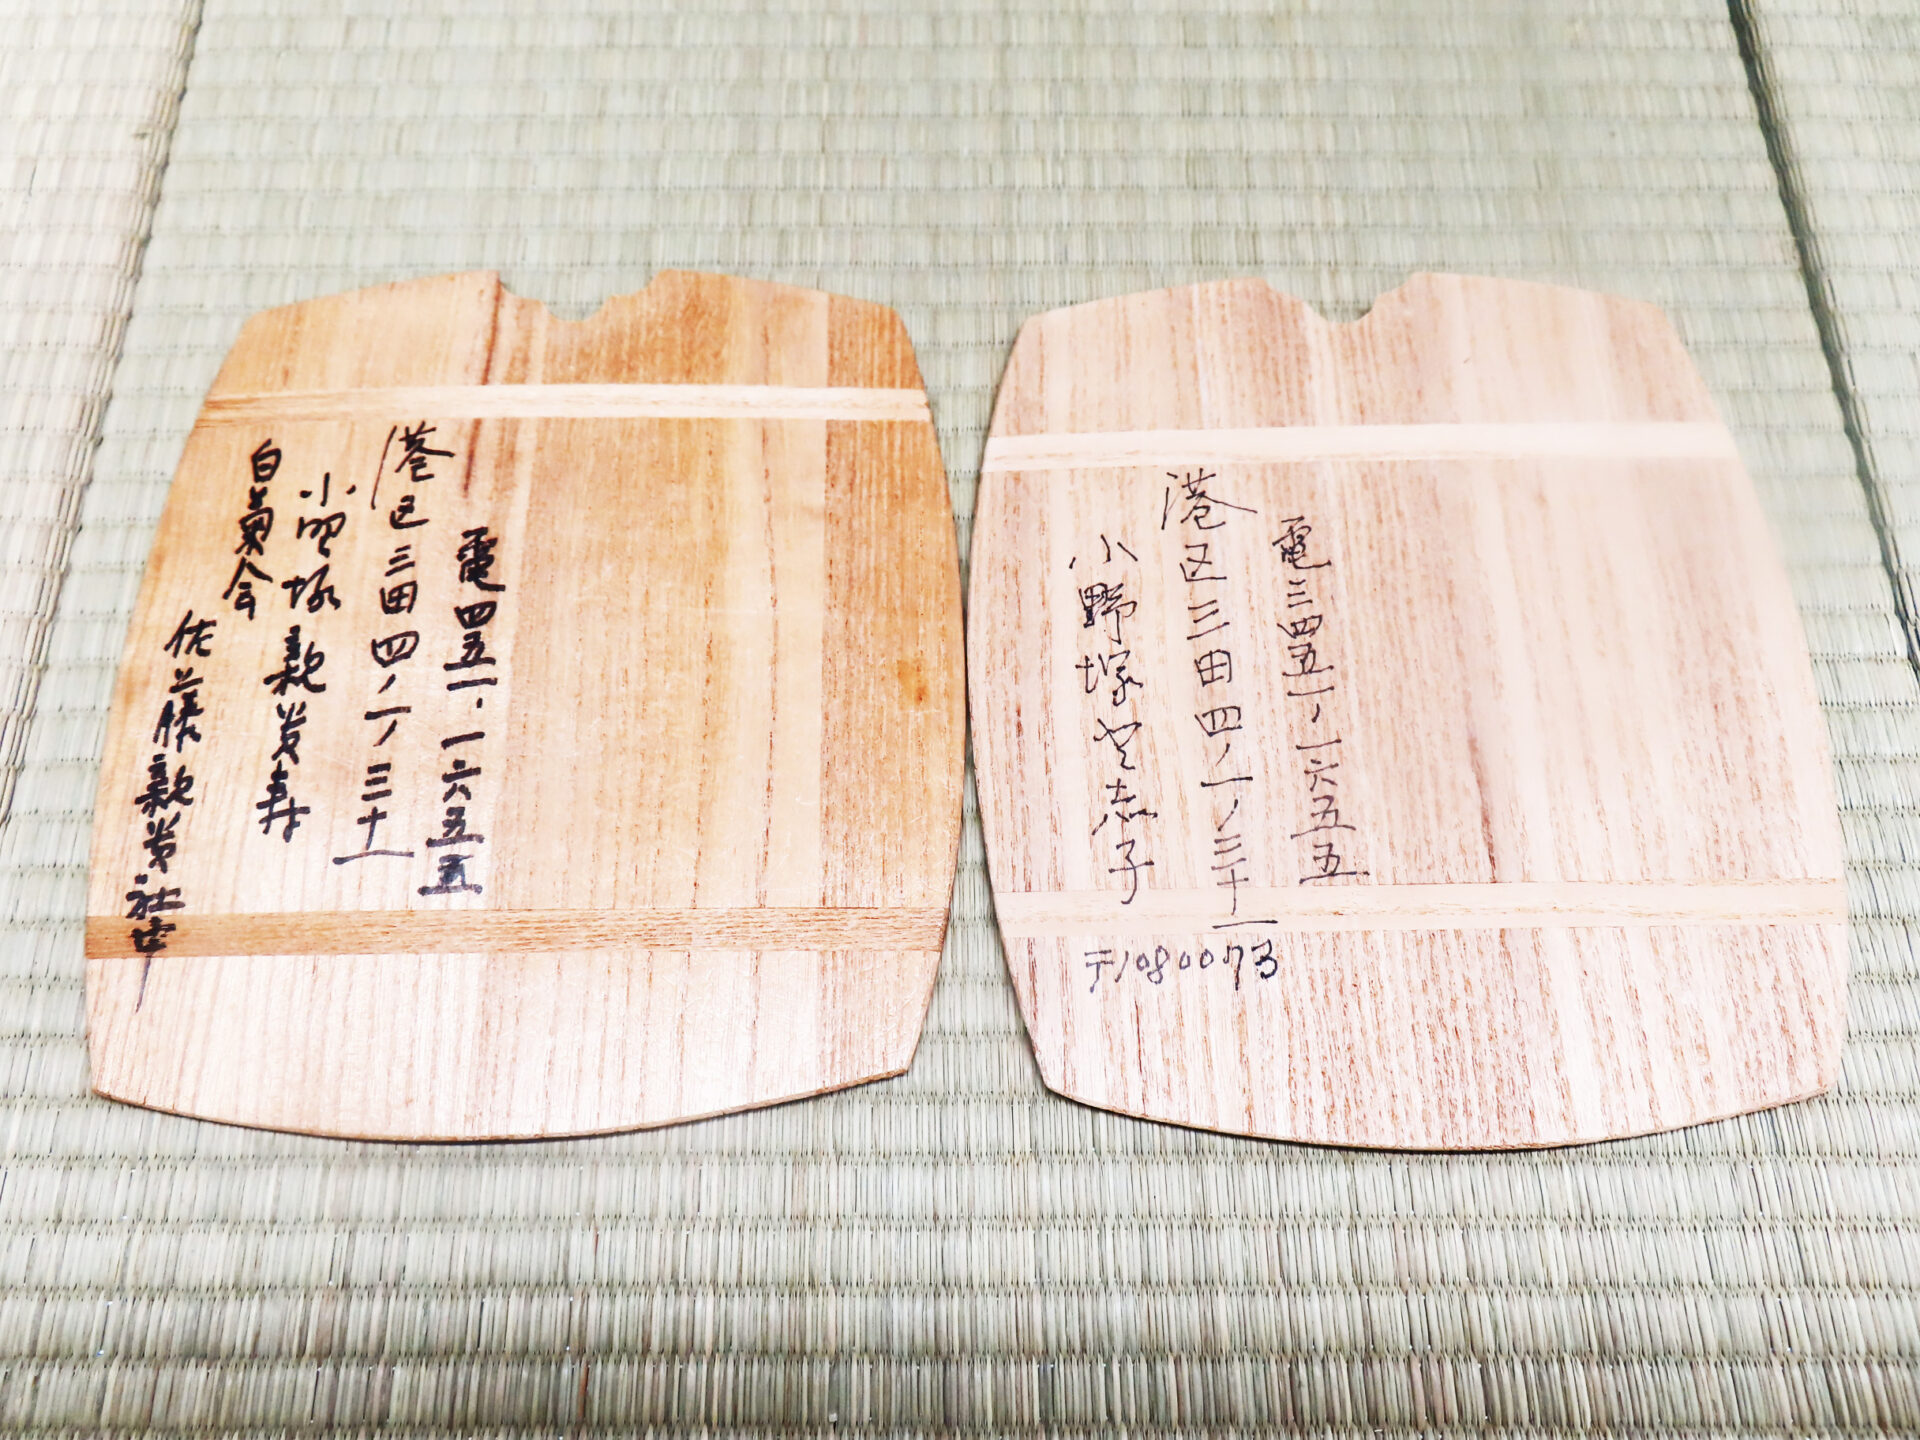 電四五一・一六五五
港区三田四ノ一ノ三十一
小野塚親英寿
白菊会
佐藤親英社中
電三四五一ノ一六五五
港区三田四ノ一ノ三十一
小野塚登志子
〒1080073